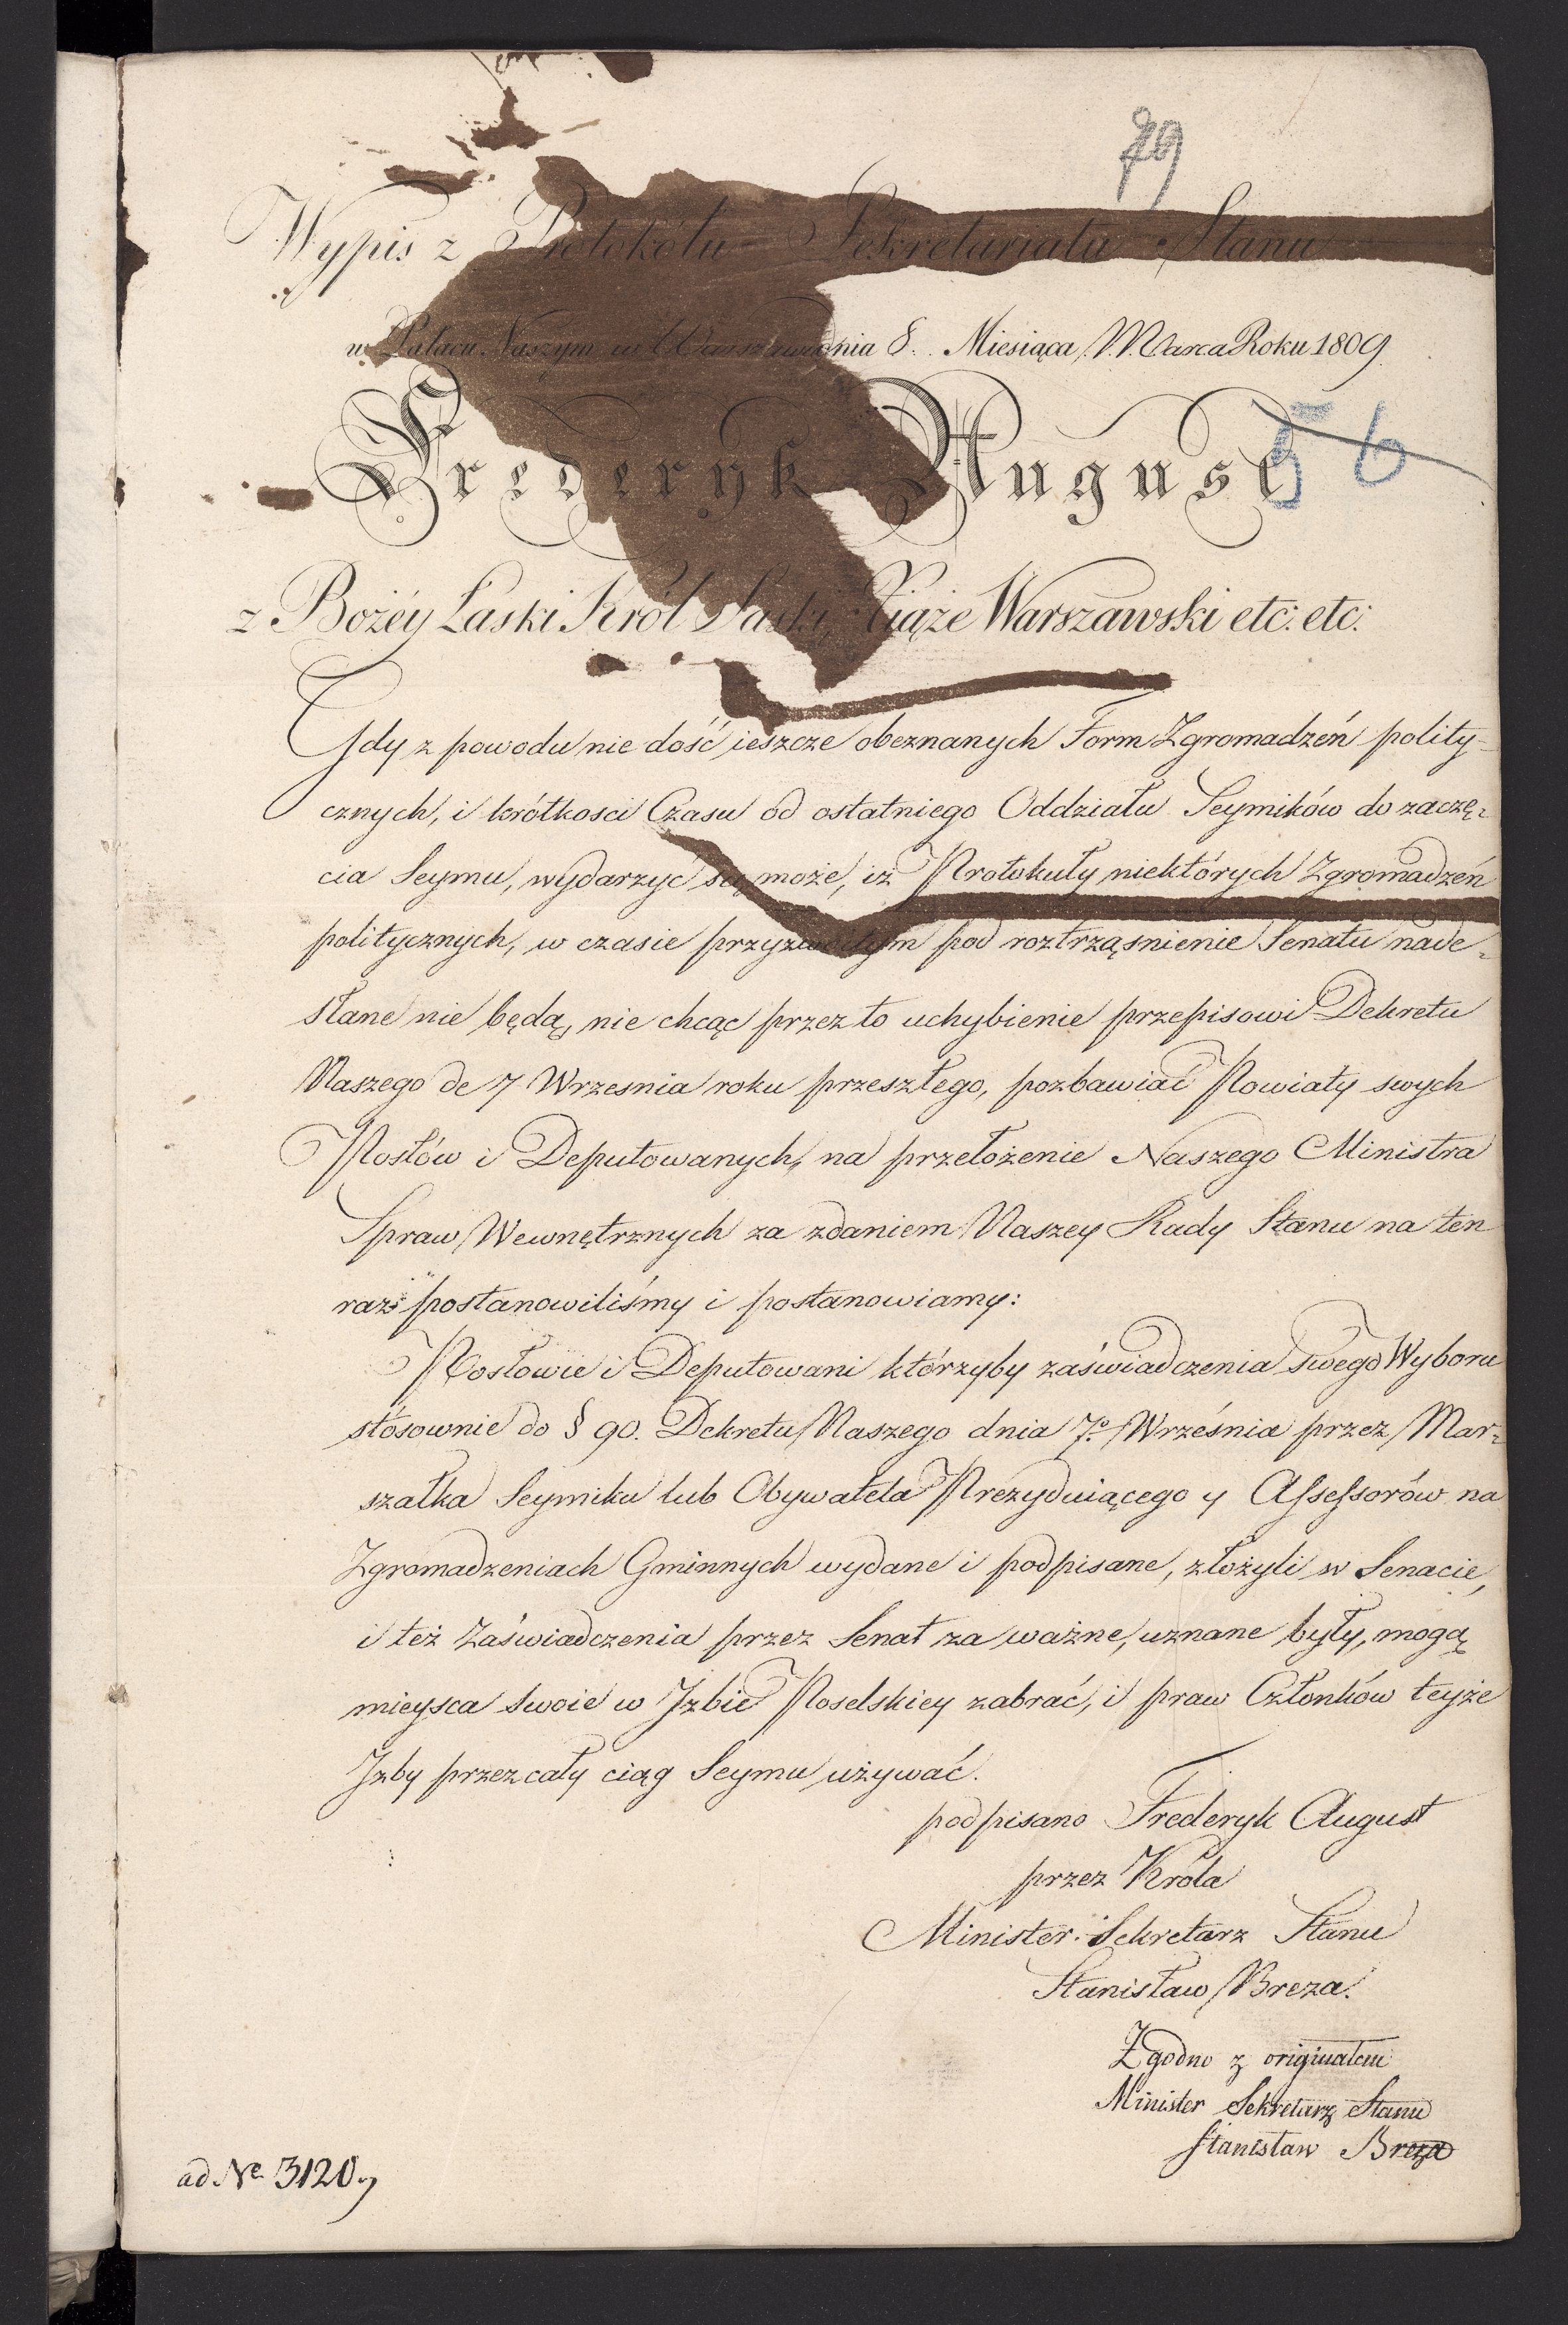 79
Wypis z Protokółu Sekretariatu Stanu
w Pałacu Naszym w Warszawie dnia 8. Miesiąca Marca Roku 1809
Frederyk August
56
z Bożéy Łaski Król Saski, Xiąże Warszawski etc: etc:
Gdy z powodu nie dość ieszcze obeznanych Form Zgromadzéń polity=
cznych, i krótkosci Czasu od ostatniego Oddziału Seymików do zaczę=
cia Seymu, wydarzyć się może, iż Protokuły niektórych Zgromadzéń
politycznych, w czasie przyzwoitym pod roztrząsnienie Senatu nade=
słane nie będą, nie chcąc przez to uchybienie przepisowi Dekretu
Naszego de 7 Wrzesnia roku przeszłego, pozbawiać Powiaty swych
Posłów i Deputowanych, na przełożenie Naszego Ministra
Spraw Wewnętrznych za zdaniem Naszey Rady Stanu na ten
raz postanowiliśmy i postanowiamy:
Posłowie i Deputowani którzyby zaświadczenia swego Wyboru
stósownie do § 90. Dekretu Naszego dnia 7º Września przez Mar=
szałka Seymiku lub Obywatela Prezyduiącego y Assessorów na
Zgromadzeniach Gminnych wydane i podpisane, złożyli w Senacie,
i też Zaświadczenia przez Senat za ważne, uznane były, mogą
mieysca swoie w Jzbie Poselskiey zabrać, i praw Członków teyże
Jzby przez cały ciąg Seymu używać.
podpisano Frederyk August
przez Króla
Minister Sekretarz Stanu
Stanisław Breza.
Zgodno z originałem
Minister Sekretarz Stanu
Stanisław Breza
ad Nº 3120